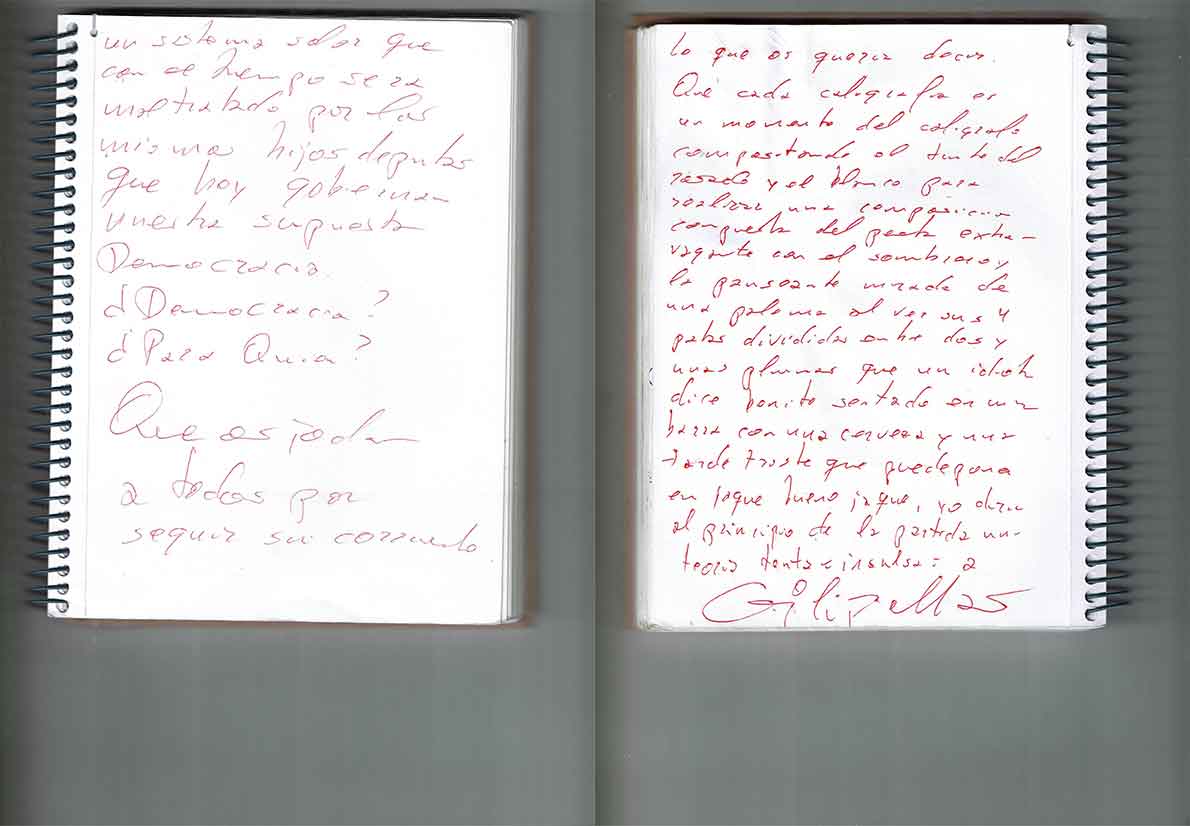 un sistema solar que
con el tiempo sera
maltratado por los
mismos hijos deputas
que hoy gobiernan
nuestra supuesta
Democracia.
¿Democracia?
¿Para Quien?
Que os jodan
a todos por
seguir su corriente
lo que os queria decir.
Qué cada caligrafia es
un momento del caligrafo
el tinte del
rosado y el blanco para
realizar una composicion
compuesta del poeta extra-
vagante con el sombrero y
la pensante mirada de
una paloma al ver sus 4
patas divididas entre dos y
unas plumas que un idiota
dice bonito sentado en una
barra con una cerveza y una
tarde triste que
en jaque bueno jaque, yo diria
al principio de la partida un-
tonta e insulsa: a
Gilipollas